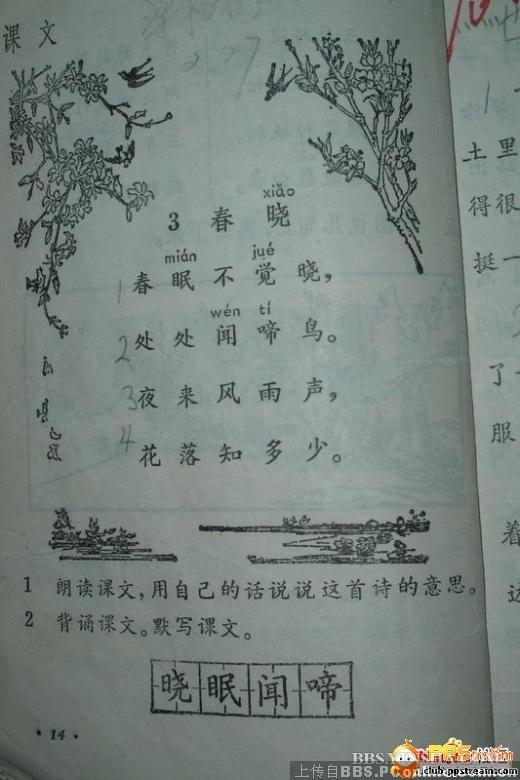 课文
xiǎo
3 春 晓
mián jué
1 春眠不觉晓，
wén tí
2 处处闻啼鸟。
3 夜来风雨声，
4 花落知多少。
1 朗读课文，用自己的话说说这首诗的意思。
2 背诵课文。默写课文。
晓眠闻啼
·14·
土里
得很
挺一
了一
服
着
边
上传自BBS.
club.ppstream.com